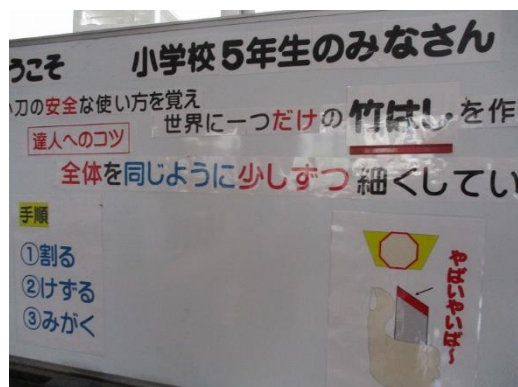 うこそ 小学校5年生のみなさん
刀の安全な使い方を覚え
世界に一つだけの竹はしを作
達人へのコツ
全体を同じように少しずつ細くしてい
手順
①割る
②けずる
③みがく
やばいやいば～